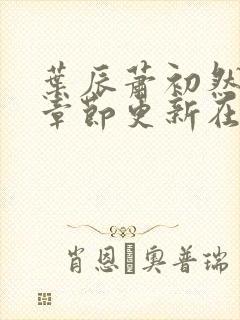 葉辰蕭初然
章節更新在
肖恩 奧普瑞